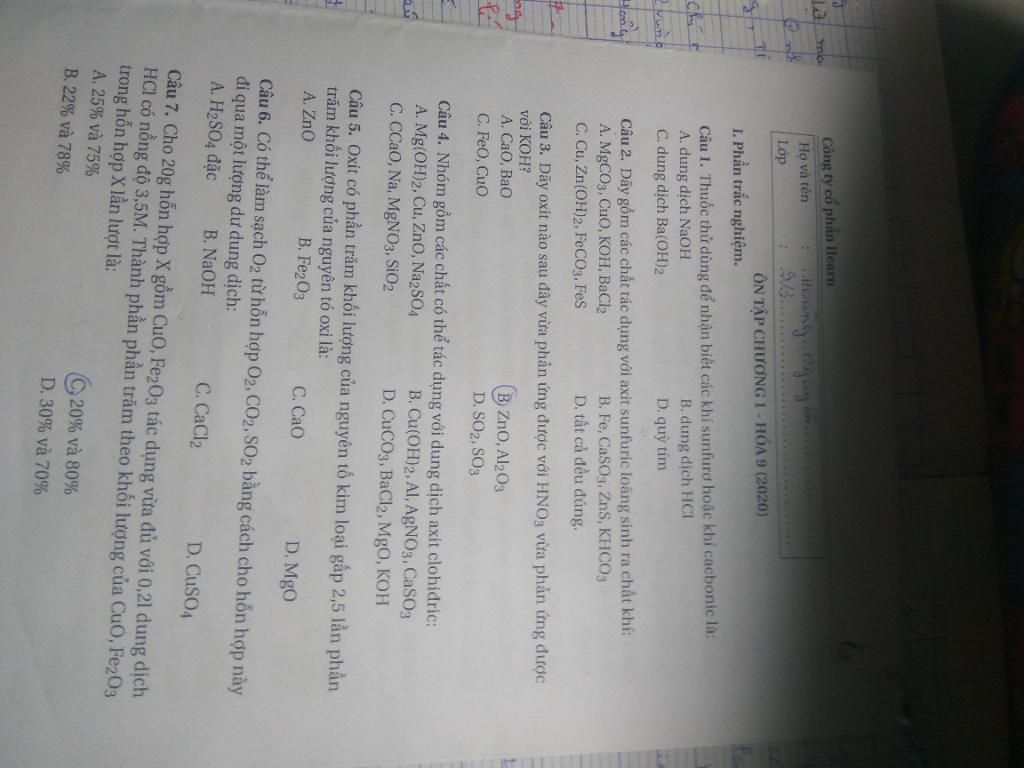 Công ty cổ phần Ilearn
Họ và tên : Hoàng Nguyên
Lớp : 9/3
ÔN TẬP CHƯƠNG 1 - HÓA 9 (2020)
I. Phần trắc nghiệm.
Câu 1. Thuốc thử dùng để nhận biết các khí sunfurơ hoặc khí cacbonic là:
A. dung dịch NaOH B. dung dịch HCl
C. dung dịch Ba(OH)2 D. quỳ tím
Câu 2. Dãy gồm các chất tác dụng với axit sunfuric loãng sinh ra chất khí:
A. MgCO3, CuO, KOH, BaCl2 B. Fe, CaSO3, ZnS, KHCO3
C. Cu, Zn(OH)2, FeCO3, FeS D. tất cả đều đúng.
Câu 3. Dãy oxit nào sau đây vừa phản ứng được với HNO3 vừa phản ứng được
với KOH?
A. CaO, BaO B. ZnO, Al2O3
C. FeO, CuO D. SO2, SO3
Câu 4. Nhóm gồm các chất có thể tác dụng với dung dịch axit clohiđric:
A. Mg(OH)2, Cu, ZnO, Na2SO4 B. Cu(OH)2, Al, AgNO3, CaSO3
C. CCaO, Na, MgNO3, SiO2 D. CuCO3, BaCl2, MgO, KOH
Câu 5. Oxit có phần trăm khối lượng của nguyên tố kim loại gấp 2,5 lần phần
trăm khối lượng của nguyên tố oxi là:
A. ZnO B. Fe2O3 C. CaO D. MgO
Câu 6. Có thể làm sạch O2 từ hỗn hợp O2, CO2, SO2 bằng cách cho hỗn hợp này
đi qua một lượng dư dung dịch:
A. H2SO4 đặc B. NaOH C. CaCl2 D. CuSO4
Câu 7. Cho 20g hỗn hợp X gồm CuO, Fe2O3 tác dụng vừa đủ với 0,2l dung dịch
HCl có nồng độ 3,5M. Thành phần phần trăm theo khối lượng của CuO, Fe2O3
trong hỗn hợp X lần lượt là:
A. 25% và 75% C. 20% và 80%
B. 22% và 78% D. 30% và 70%